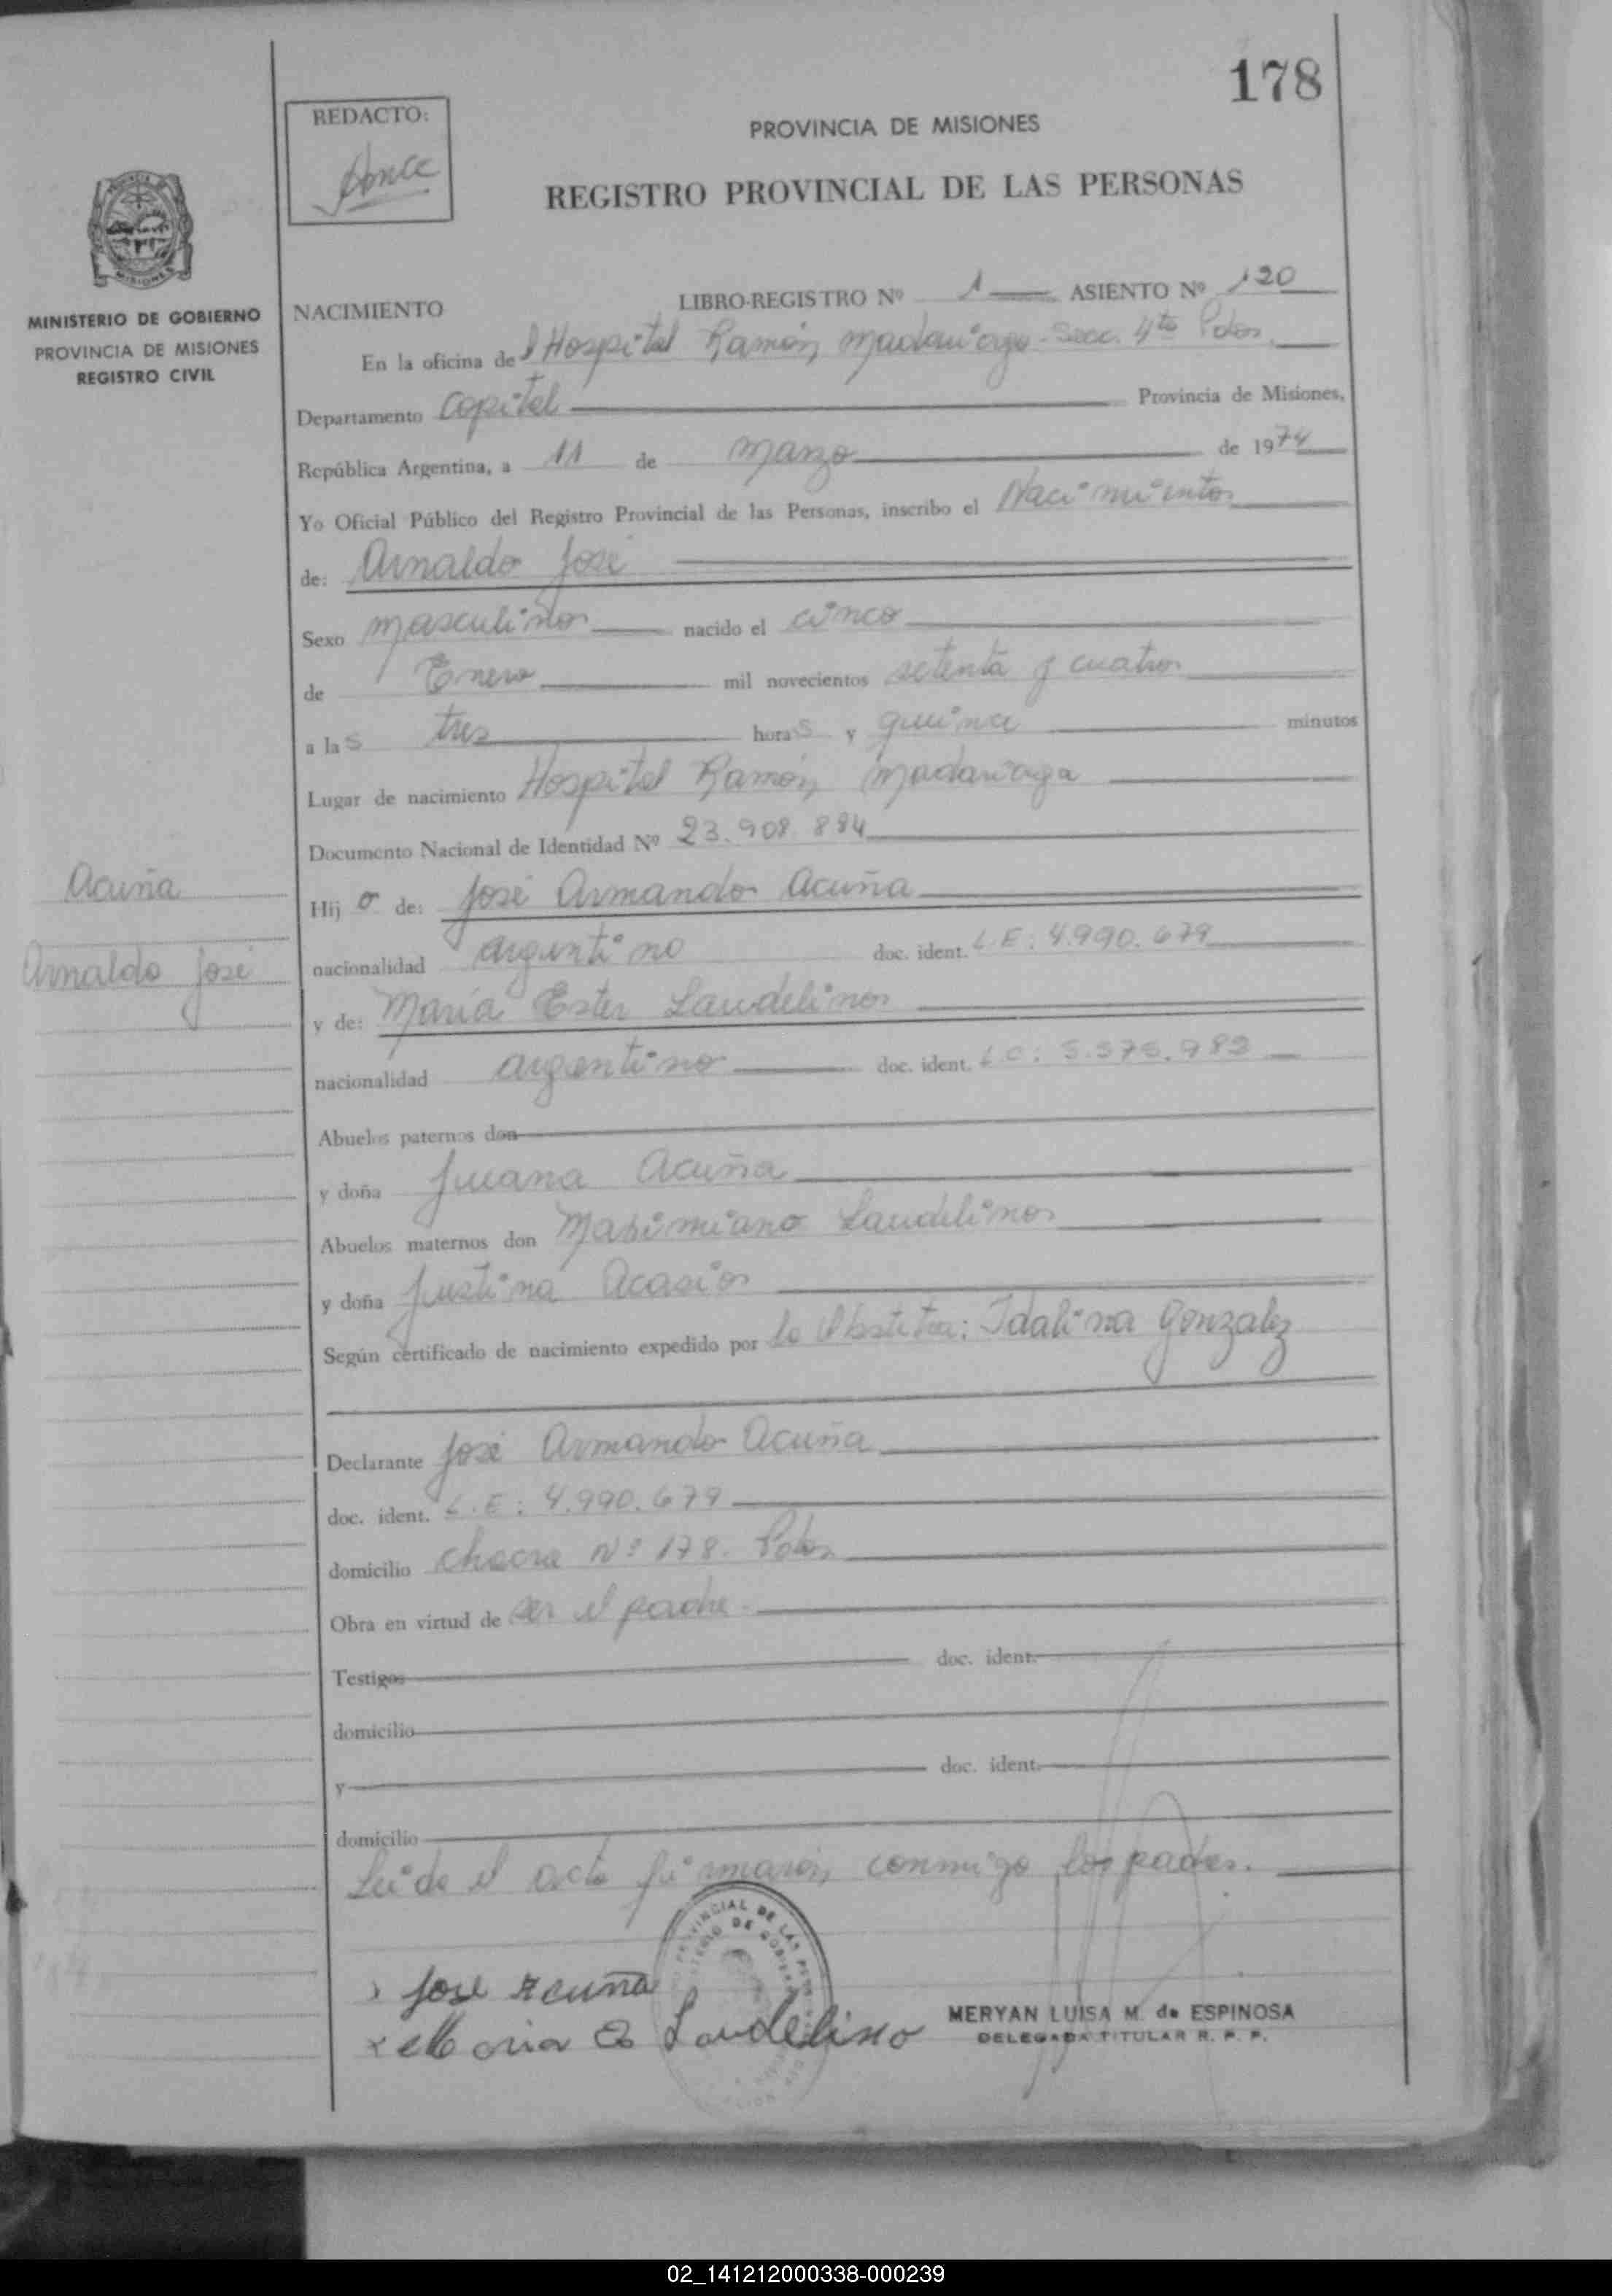 178
REDACTO:
PROVINCIA DE MISIONES
REGISTRO PROVINCIAL DE LAS PERSONAS
MISIONES
MINISTERIO DE GOBIERNO
PROVINCIA DE MISIONES
REGISTRO CIVIL
NACIMIENTO LIBRO-REGISTRO Nº 1 ASIENTO Nº 120
En la oficina del Hospital Ramón Madariaga - Secc. 4ta Pdas.
Departamento Capital Provincia de Misiones,
República Argentina, a 11 de Marzo de 1974
Yo Oficial Público del Registro Provincial de las Personas, inscribo el Nacimiento
de: Arnaldo José
Sexo masculino nacido el cinco
de Enero mil novecientos setenta y cuatro
a las tres horas y quince minutos
Lugar de nacimiento Hospital Ramón Madariaga
Documento Nacional de Identidad Nº 23.908.884
Acuña
Hijo de: José Armando Acuña
Arnaldo José
nacionalidad argentino doc. ident. L.E: 4.990.679
y de: María Ester Laudelino
nacionalidad argentino doc. ident. L.C:
Abuelos paternos don
y doña Juana Acuña
Abuelos maternos don Maximiano Laudelino
y doña Justina Acasio
Según certificado de nacimiento expedido por la Obstetra: Idalina Gonzalez
Declarante José Armando Acuña
doc. ident. L.E: 4.990.679
domicilio chacra Nº 178. Pdas
Obra en virtud de ser el padre.
Testigos doc. ident.
domicilio
y doc. ident.
domicilio
Leída el acta firmaron conmigo los padres.
PROVINCIAL DE LAS
DE GOBIERNO
Jose Acuña
Maria E Laudelino
MERYAN LUISA M. de ESPINOSA
DELEGADA TITULAR R. P. P.
02_141212000338-000239